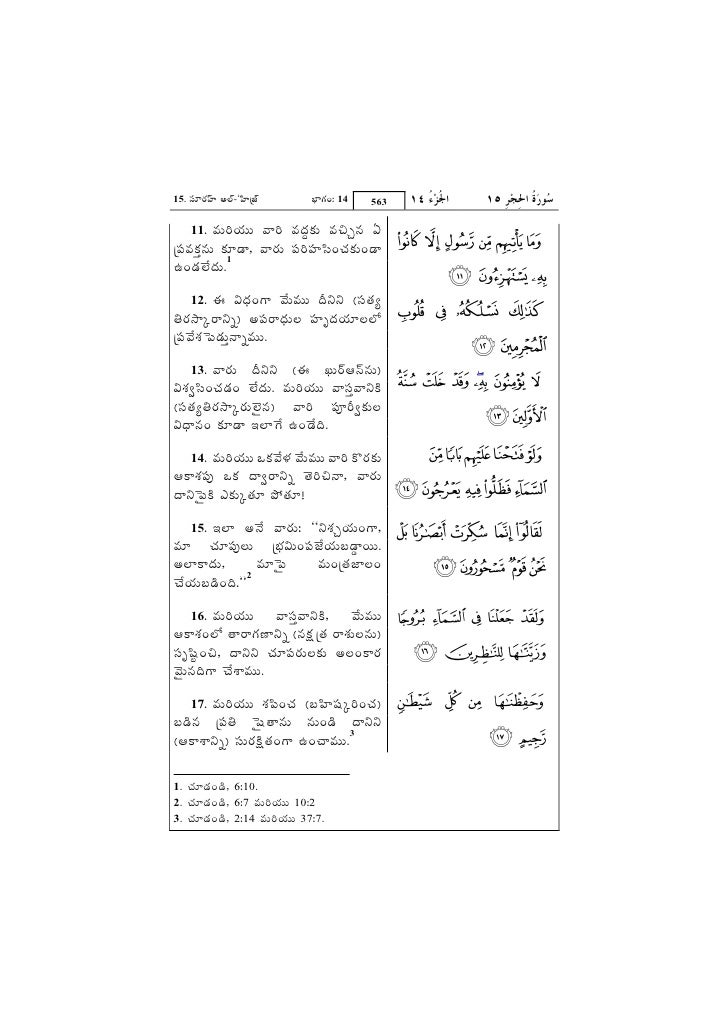 15. సూరహ్ అల్-'హిజ్ర్ భాగం: 14 563 الجُزْءُ ١٤ سُورَةُ الحِجْرِ ١٥
11. మరియు వారి వద్దకు వచ్చిన ఏ
ప్రవక్తను కూడా, వారు పరిహసించకుండా
ఉండలేదు.1
12. ఈ విధంగా మేము దీనిని (సత్య
తిరస్కారాన్ని) అపరాధుల హృదయాలలో
ప్రవేశపెడుతున్నాము.
13. వారు దీనిని (ఈ ఖుర్ఆన్‌ను)
విశ్వసించడం లేదు. మరియు వాస్తవానికి
(సత్యతిరస్కారులైన) వారి పూర్వీకుల
విధానం కూడా ఇలాగే ఉండేది.
14. మరియు ఒకవేళ మేము వారి కొరకు
ఆకాశపు ఒక ద్వారాన్ని తెరిచినా, వారు
దానిపైకి ఎక్కుతూ పోతూ!
15. ఇలా అనే వారు: "నిశ్చయంగా,
మా చూపులు భ్రమింపజేయబడ్డాయి.
అలాకాదు, మాపై మంత్రజాలం
చేయబడింది."2
16. మరియు వాస్తవానికి, మేము
ఆకాశంలో తారాగణాన్ని (నక్షత్ర రాశులను)
సృష్టించి, దానిని చూపరులకు అలంకార
మైనదిగా చేశాము.
17. మరియు శపించ (బహిష్కరించ)
బడిన ప్రతి షైతాను నుండి దానిని
(ఆకాశాన్ని) సురక్షితంగా ఉంచాము.3
وَمَا يَأْتِيهِم مِّن رَّسُولٍ إِلَّا كَانُوا۟
بِهِۦ يَسْتَهْزِءُونَ ١١
كَذَٰلِكَ نَسْلُكُهُۥ فِى قُلُوبِ
ٱلْمُجْرِمِينَ ١٢
لَا يُؤْمِنُونَ بِهِۦ ۖ وَقَدْ خَلَتْ سُنَّةُ
ٱلْأَوَّلِينَ ١٣
وَلَوْ فَتَحْنَا عَلَيْهِم بَابًا مِّنَ
ٱلسَّمَآءِ فَظَلُّوا۟ فِيهِ يَعْرُجُونَ ١٤
لَقَالُوٓا۟ إِنَّمَا سُكِّرَتْ أَبْصَٰرُنَا بَلْ
نَحْنُ قَوْمٌ مَّسْحُورُونَ ١٥
وَلَقَدْ جَعَلْنَا فِى ٱلسَّمَآءِ بُرُوجًا
وَزَيَّنَّٰهَا لِلنَّٰظِرِينَ ١٦
وَحَفِظْنَٰهَا مِن كُلِّ شَيْطَٰنٍ
رَّجِيمٍ ١٧
1. చూడండి, 6:10.
2. చూడండి, 6:7 మరియు 10:2
3. చూడండి, 2:14 మరియు 37:7.